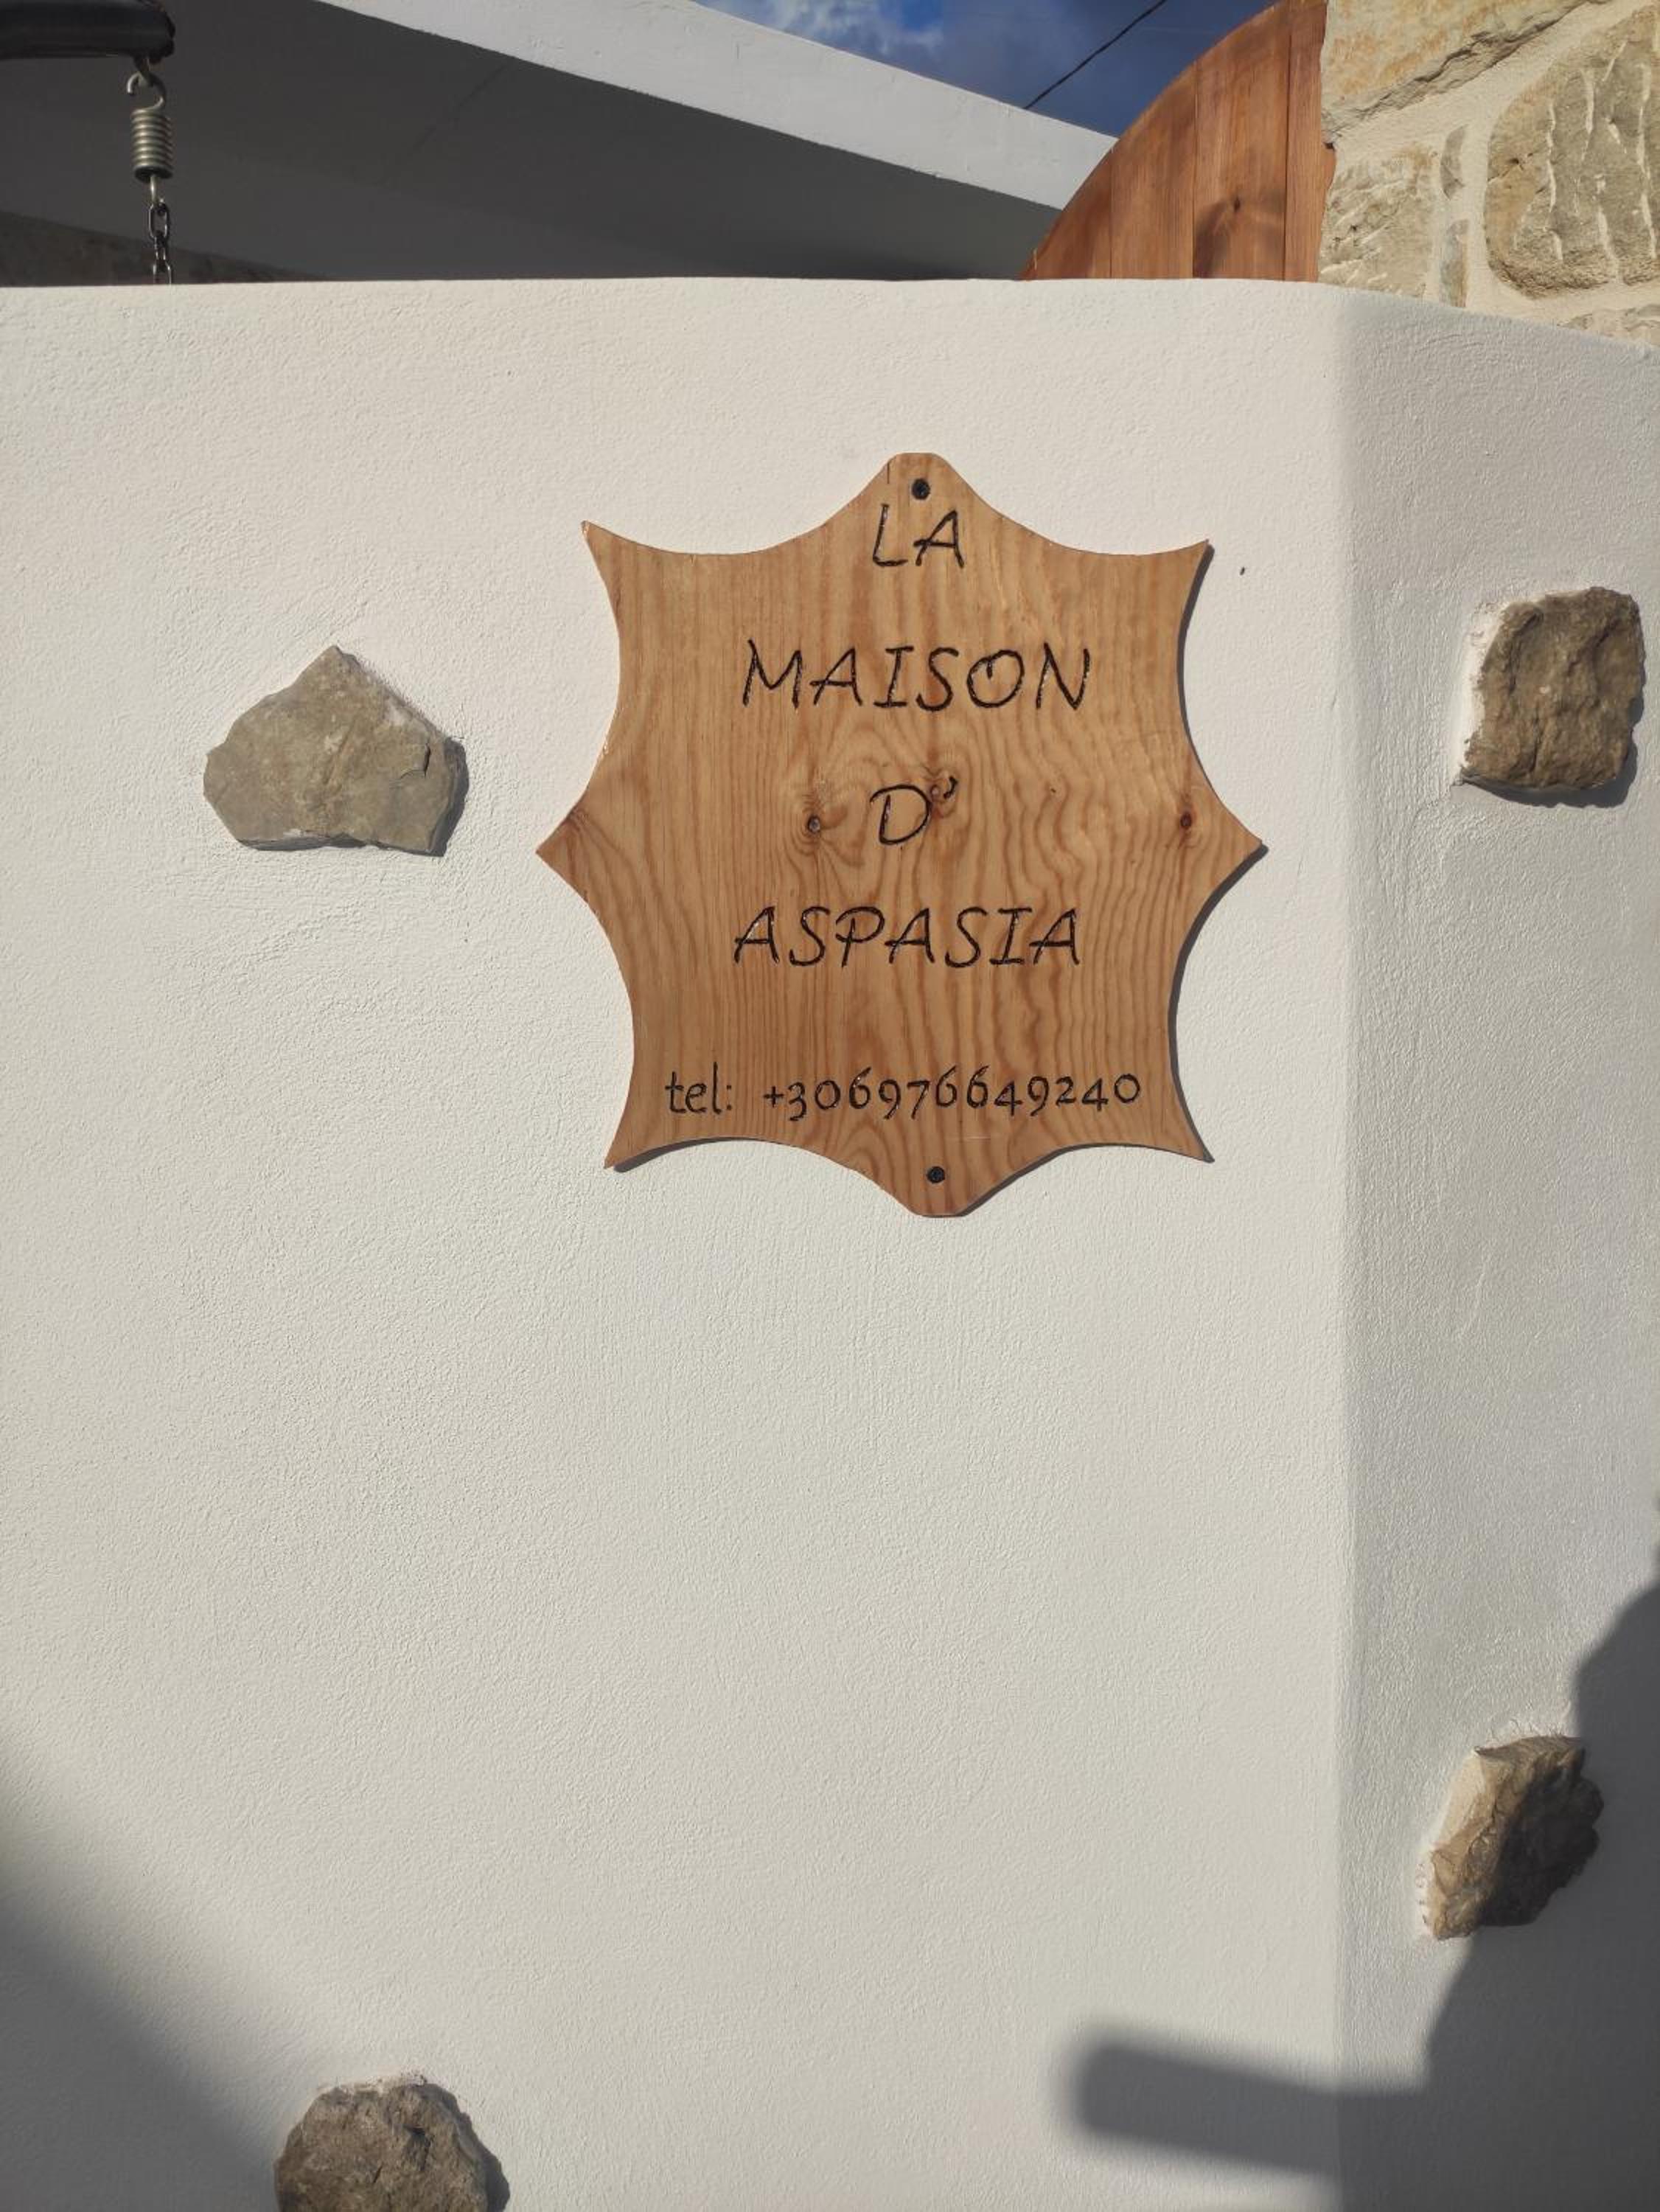 LA
MAISON
D'
ASPASIA
tel: +306976649240